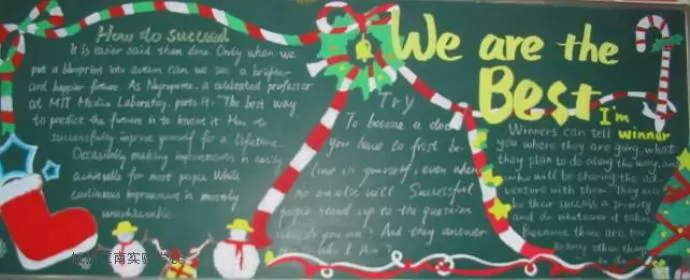 How to Succeed
It is easier said than done. Only when we
put a blueprint into action can we see a brighter
and happier future. As Negroponte, a celebrated professor
at MIT Media Laboratory, puts it: "The best way
to predict the future is to invent it. How to
successfully improve yourself for a lifetime.
Occasionally making improvements is easily
achievable for most people. While
continuous improvement is merely
unachievable.
Try
To become a
you have to first be-
lieve in yourself, even when
no one else will. Successful
people stand up to the question
you are? And they answer
We are the
Best
I'm
winner
Winners can tell
you where they are going, what
they plan to do along the way, and
who will be sharing the ad-
venture with them. They
be their success a priority
and do whatever it takes
Because there are too
many other things
to do